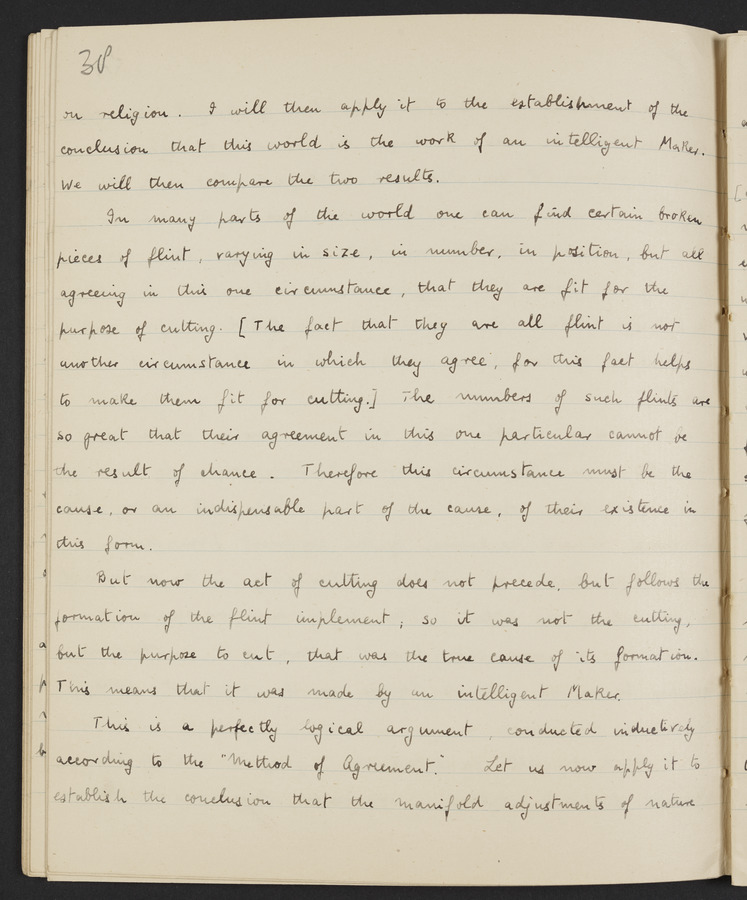 38
on religion. I will then apply it to the establishment of the
conclusion that this world is the work of an intelligent Maker.
We will then compare the two results.
In many parts of the world one can find certain broken
pieces of flint, varying in size, in number, in position, but all
agreeing in this one circumstance, that they are fit for the
purpose of cutting. [The fact that they are all flint is not
another circumstance in which they agree, for this fact helps
to make them fit for cutting.] The numbers of such flints are
so great that their agreement in this one particular cannot be
the result of chance. Therefore this circumstance must be the
cause, or an indispensable part of the cause, of their existence in
this form.
But now the act of cutting does not precede, but follows the
formation of the flint implement; so it was not the cutting,
but the purpose to cut, that was the true cause of its formation.
This means that it was made by an intelligent Maker.
This is a perfectly logical argument, conducted inductively
according to the "Method of Agreement." Let us now apply it to
establish the conclusion that the manifold adjustments of nature